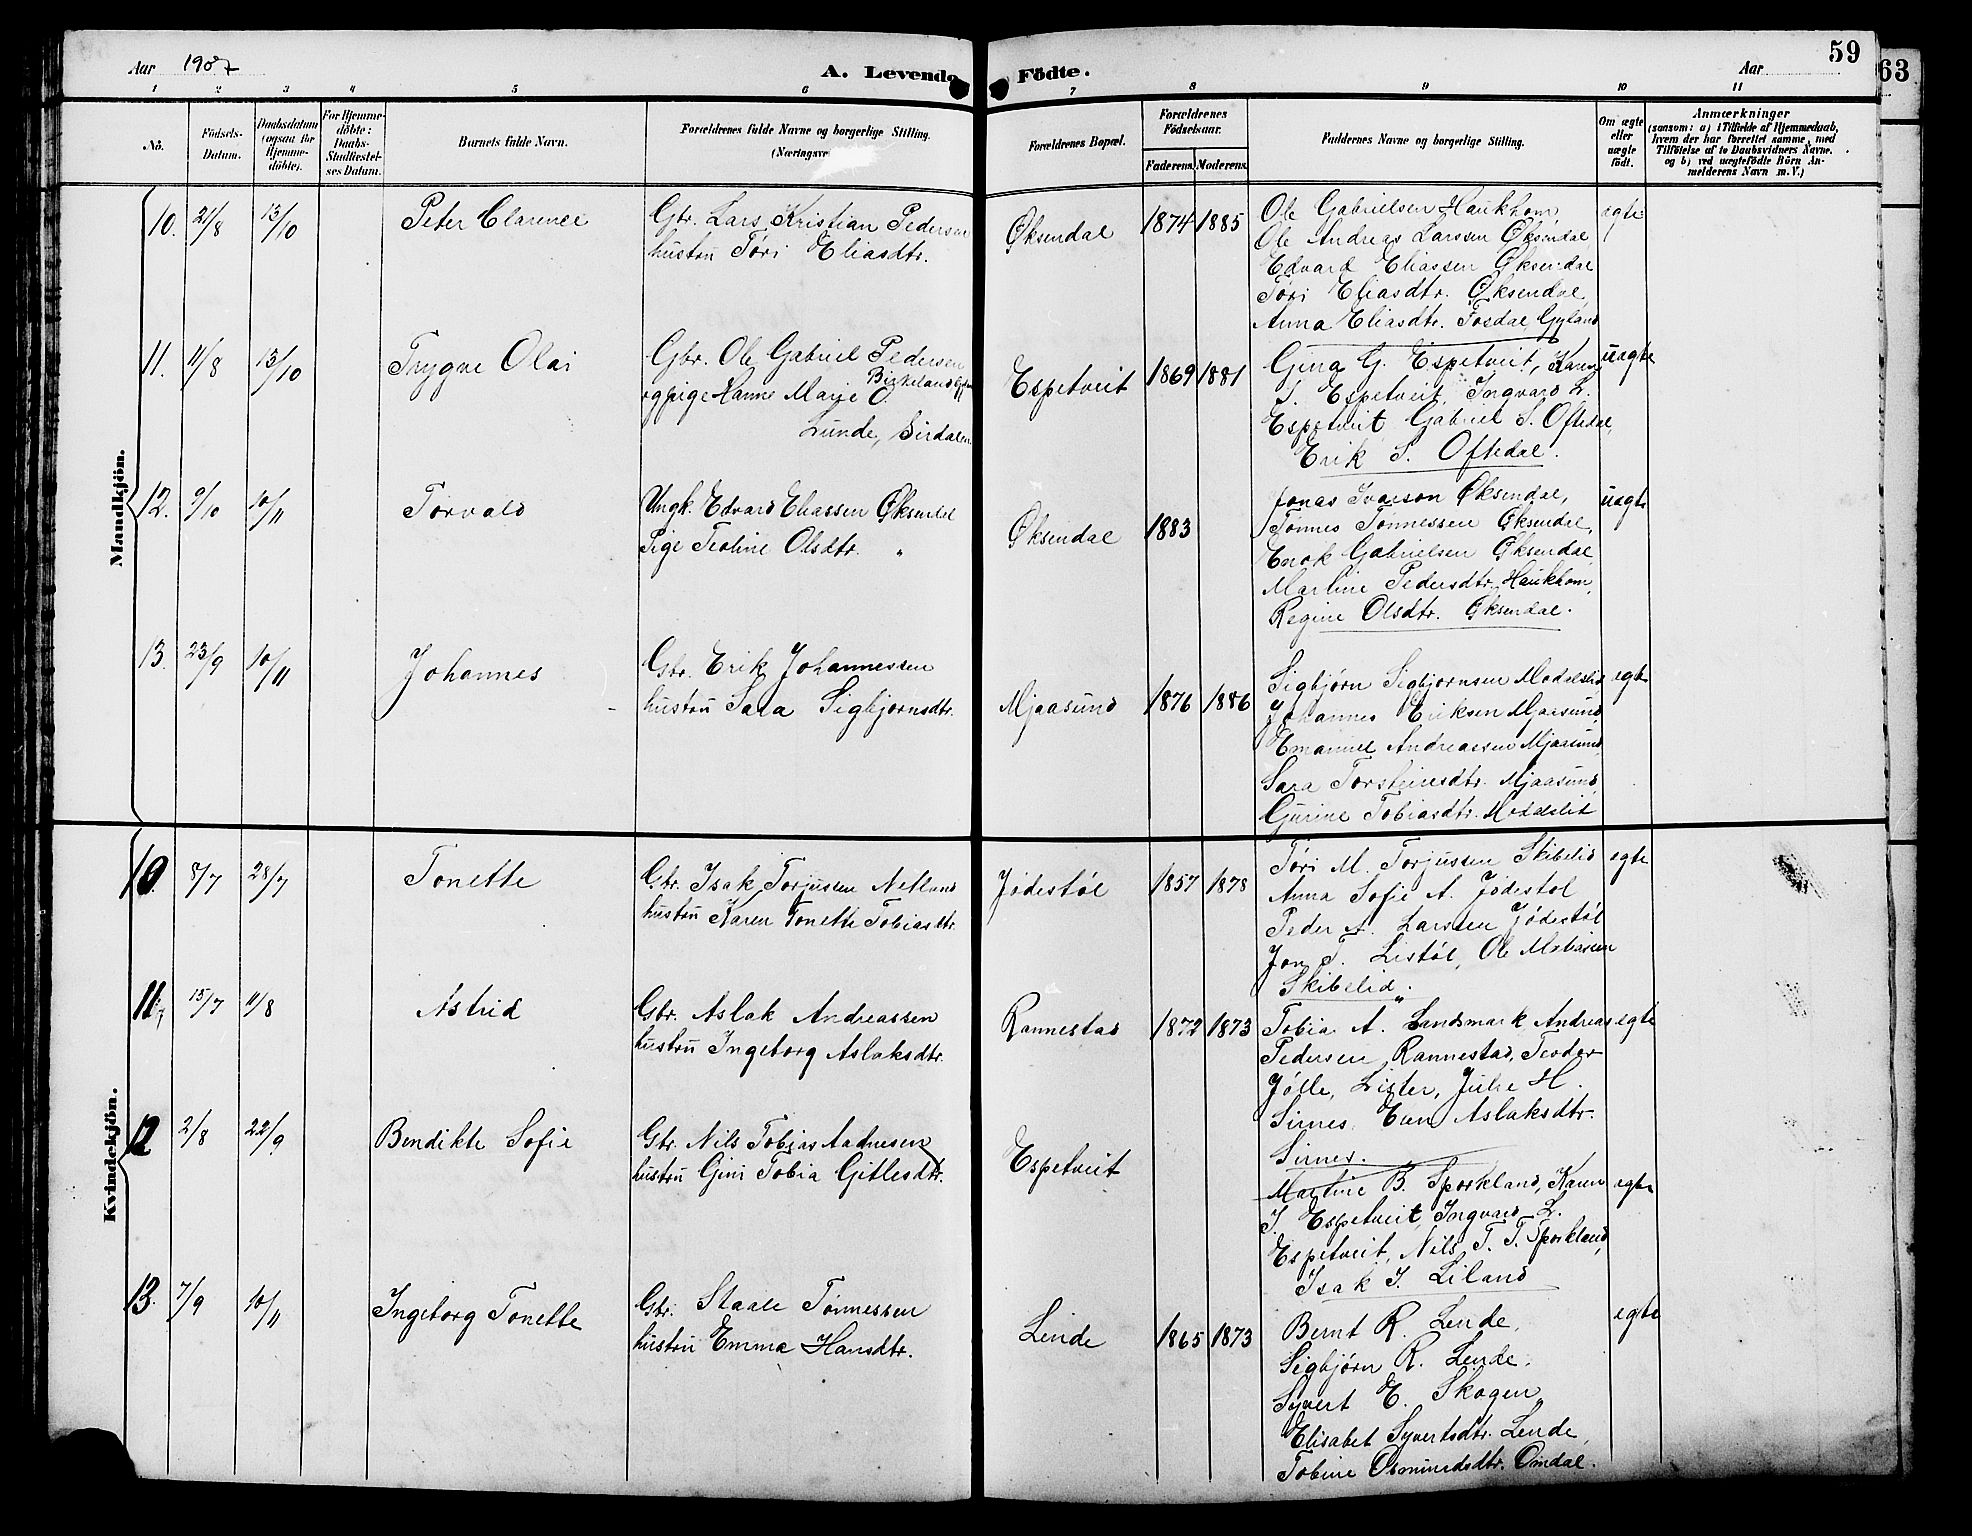 59
63
Aar 1907
A. Levende Födte.
Aar
1 2 3 4 5 6 7 8 9 10 11
No.
Födsels-
Datum.
Daabsdatum
(ogsaa for
Hjemme-
döbte).
For Hjemme-
döbte:
Daabs-
Stadfæstel-
ses Datum.
Barnets fulde Navn.
Forældrenes fulde Navne og borgerlige Stilling.
(Næringsve
Forældrenes Bopæl.
Forældrenes
Födselsaar.
Faderens. Moderens.
Faddernes Navne og borgerlige Stilling.
Om ægte
eller
uægte
födt.
Anmærkninger
(saasom: a) i Tilfælde af Hjemmedaab,
hvem der har forrettet samme, med
Tilföielse af to Daabsvidners Navne.
og b) ved uægtefödte Börn An-
melderens Navn m. V.)
Mandkjön.
10. 21/8 13/10 Peter Clarence
Gbr. Lars Kristian Pedersen
hustru Tøri Eliasdtr.
Øksendal 1874 1885
Ole Gabrielsen Haukhom,
Ole Andreas Larssen Øksendal,
Edvard Eliassen Øksendal
Tøri Eliasdtr. Øksendal,
Anna Eliasdtr. Fosdal, Gyland
egte
11. 11/8 13/10 Trygve Olai
Gbr. Ole Gabriel Pedersen
Birkeland
og pige Hanne Marie O.
Lunde, Sirdalen
Espetveit 1869 1881
Gina G. Espetveit, Karen
J. Espetveit, Ingvard L.
Espetveit, Gabriel S. Oftedal,
Erik S. Oftedal.
uegte
12. 9/10 10/11 Torvald
Ungk. Edvard Eliassen Øksendal
Pige Teoline Olsdtr. "
Øksendal 1883
Jonas Ivarson Øksendal,
Tønnes Tønnessen Øksendal,
Enok Gabrielsen Øksendal,
Martine Pedersdtr. Haukhom,
Regine Olsdtr. Øksendal.
uegte
13. 23/9 10/11 Johannes
Gbr. Erik Johannessen
hustru Sara Sigbjørnsdtr.
Mjaasund 1876 1886
Sigbjørn Sigbjørnsen Modelslid
Johannes Eriksen Mjaasund,
Emanuel Andreassen Mjaasund,
Sara Torsteinsdtr. Mjaasund,
Gurine Tobiasdtr. Moddelslid
egte
Kvindekjön.
10. 8/7 28/7 Tonette
Gbr. Isak Torjussen Netland
hustru Karen Tonette Tobiasdtr.
Jødestøl 1857 1878
Tøri M. Torjussen Skibelid
Anna Sofie A. Jødestøl
Peder A. Larssen Jødestøl
Jon T. Listøl, Ole Mathiesen
Skibelid.
egte
11. 15/7 11/8 Astrid
Gbr. Aslak Andreassen
hustru Ingeborg Aslaksdtr.
Rannestad 1872 1873
Tobia A. Landsmark Andreas
Pedersen Rannestad, Teodor
Jølle, Lister, Julie H.
Sirnes, Eva Aslaksdtr.
Sirnes.
egte
12 2/8 22/9 Bendikte Sofie
Gbr. Nils Tobias Aadnesen
hustru Gini Tobia Gitlesdtr.
Espetveit
Martine B. Sporkland, Karen
J. Espetveit, Ingvard L.
Espetveit, Nils T. T. Sporkland,
Isak J. Liland
egte
13. 7/9 10/11 Ingeborg Tonette
Gbr. Staale Tønnessen
hustru Emma Hansdtr.
Lende 1865 1873
Bernt R. Lende,
Sigbjørn R. Lende,
Syvert E. Skogen,
Elisabet Syvertsdtr. Lende,
Tobine Osmundsdtr. Omdal.
egte